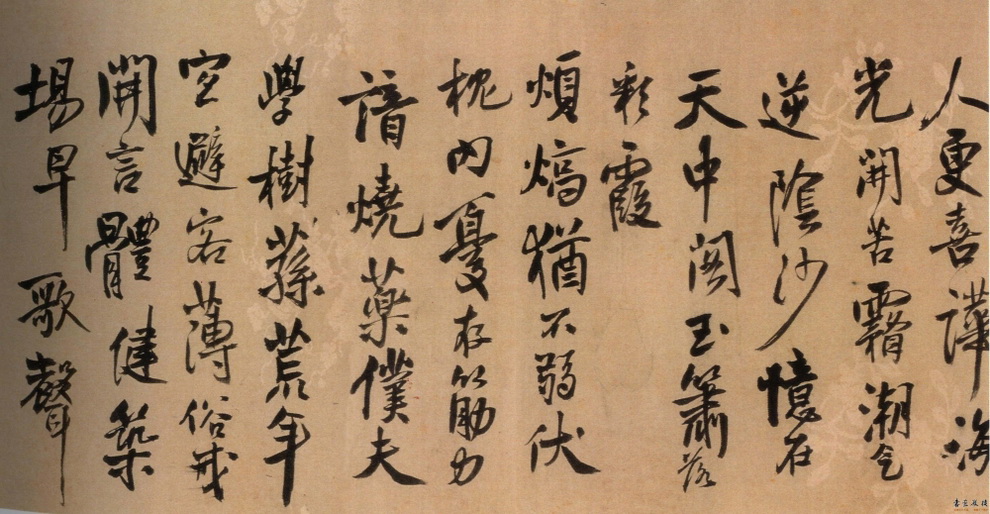 人更喜譁海
光開苦霧潮氣
逆陰沙憶在
天中閣玉簫落
彩霞
煩熇猶不弱伏
枕內憂存筋力
諳燒藥僕夫
學樹蓀荒年
空避客薄俗戒
開言體健築
場早歌聲